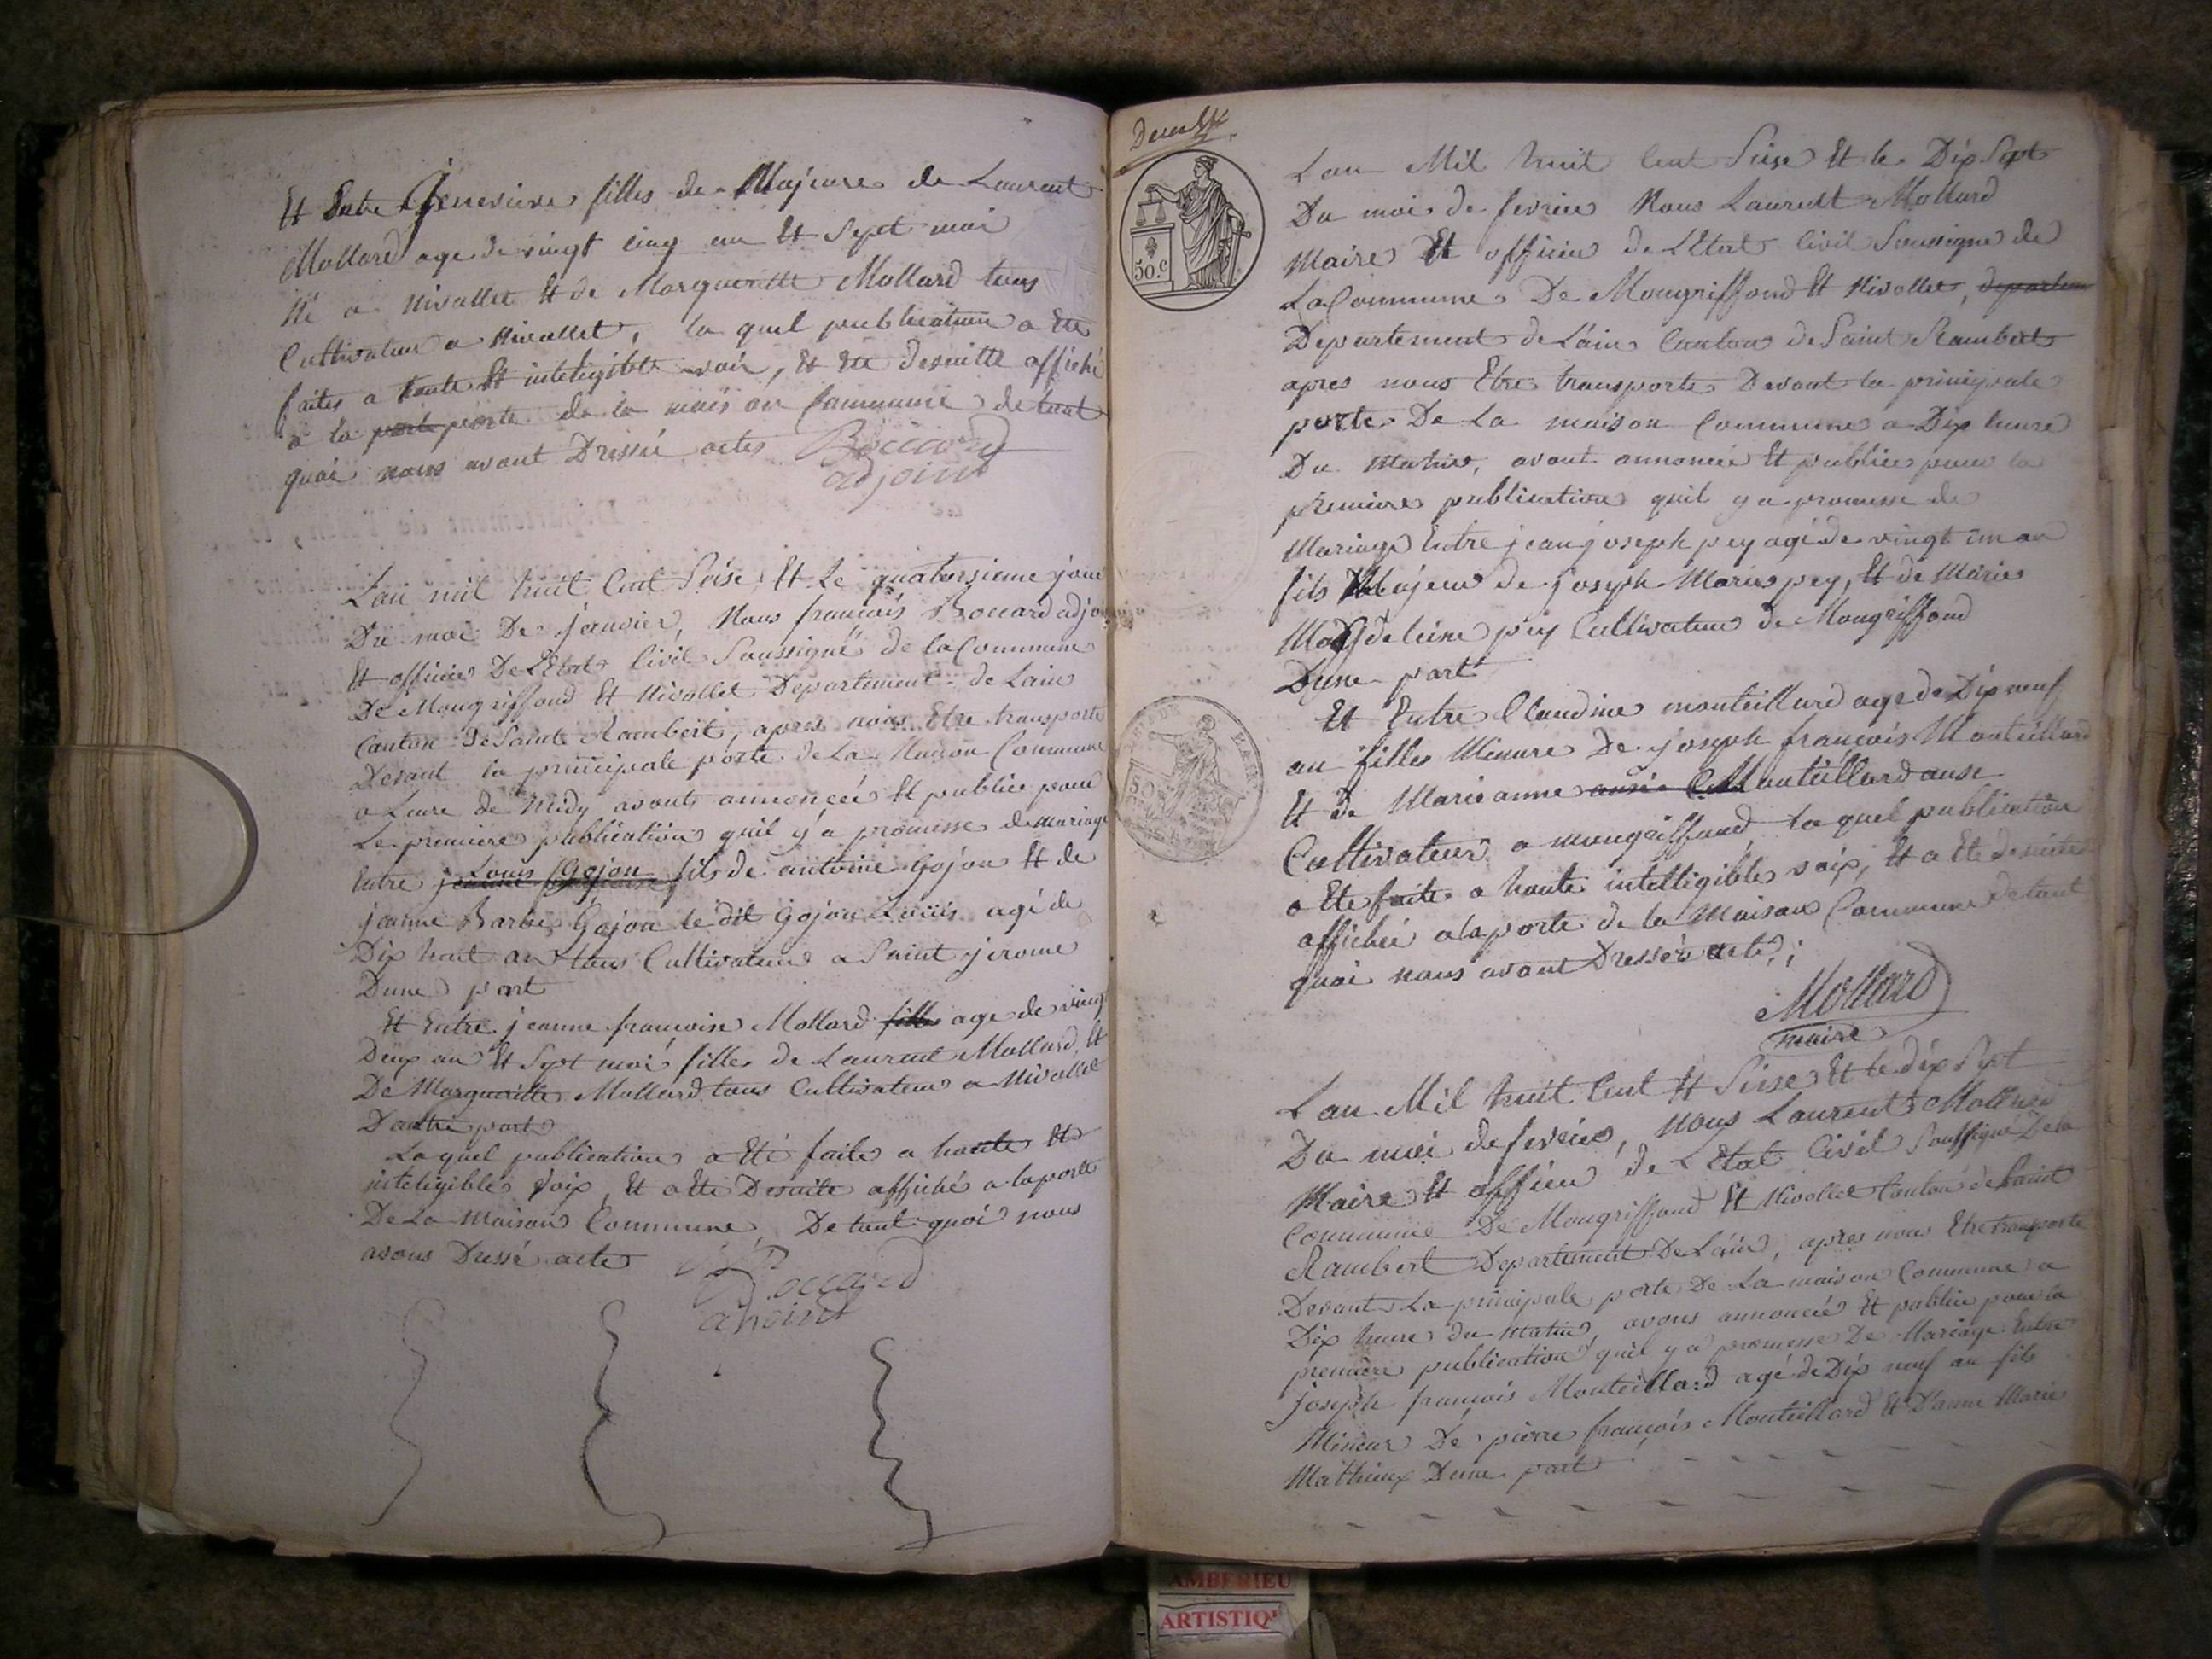 Et Entre Genevieve filles de Majeure de Laurent
Mollard age de vingt cinq an Et Sept moi
Né a Nivollet Et de Margueritte Mollard tous
Cultivateur a Nivollet, la quel publication a Ete
faites a haute Et inteligible voix, Et Eté desuitte affiché
a la porte porte de la maison Commune de tout
quoi nous avont Dressée actes Boccard
adjoint
L'an mil huit Cent Seise Et Le quatorsieme jour
Du moi De janvier, Nous françois Bocard adjoi
Et officier De L'Etat Civil Soussigné de la Commune
De Mongriffond Et Nivollet Departement de Lain
Canton De Saint Rambert, apres nous Etre transporte
Devant la principale porte de La Maison Commune
a Leure de Midy avont annoncée Et publiee pour
Le premiere publication quil y a promisse de mariage
Entre Louis Gojon fils de antoine Gojon Et de
jeanne Barbe Gojon le dit Gojon Louis agé de
Dix huit an tous Cultivateur a Saint jerome
Dune part
Et Entre jeanne françoise Mollard fille age de vingt
Deux an Et Sept moi filles de Laurent Mollard Et
De Marguerite Mollard tous Cultivateur a Nivollet
Dautre part
La quel publication a Eté faite a haute Et
inteligible voix, Et a Ete Desuite affiché a la porte
De La Maison Commune, De tout quoi nous
avons Dressé acte
Boccard
adjoint
50.c
Lan Mil huit Cent Seise Et le Dix Sept
Du moi de fevrier Nous Laurent Mollard
Maire Et officier de L'Etat Civil Soussigne de
La Commune De Mongriffond Et Nivollet, departem
Departement de Lain Canton de Saint Rambert
apres nous Etre transporte Devant la principale
porte De La maison Commune a Dix heure
Du Matin, avont annoncée Et publiee pour la
premiere publication quil y a promesse de
Mariage Entre jean joseph pey agé de vingt un an
fils Majeur de joseph Marie pey, Et de Marie
Magdeleine pey Cultivateur de Mongriffond
Dune part
Et Entre Claudine monteillard age de Dix neuf
an filles Minure De joseph françois Monteillard
Et de Marie anne Monteillard ausi
Cultivateur a mongriffond la quel publication
a Ete faite a haute intelligible voix, Et a Ete desuite
affichée a la porte de la Maison Commune de tout
quoi nous avont Dressée acte;
Mollard
maire
Lan Mil huit Cent Et Seise Et le dix Sept
Du moi de fevrier, Nous Laurent Mollard
Maire Et officier de L'Etat Civil Soussigné De la
Commune De Mongriffond Et Nivollet Canton de Saint
Rambert Departement De Lain, apres nous Etre transporte
Devant La principale porte De La maison Commune a
Dix heure du Matin, avons annoncée Et publiee pour la
premiere publication quil y a promesse De Mariage Entre
joseph françois Monteillard agé de Dix neuf an fils
Mineur De pierre françois Monteillard Et D'anne Marie
Mathieux Dune part
AMBERIEU
ARTISTIQ